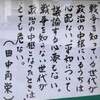 戦争を知っている世代が
政治の中枢にいるうちは
心配ない。平和について
議論する必要もない。
だが、戦争を知らない世代が
政治の中枢になったときは
とても危ない。
（田中角栄）